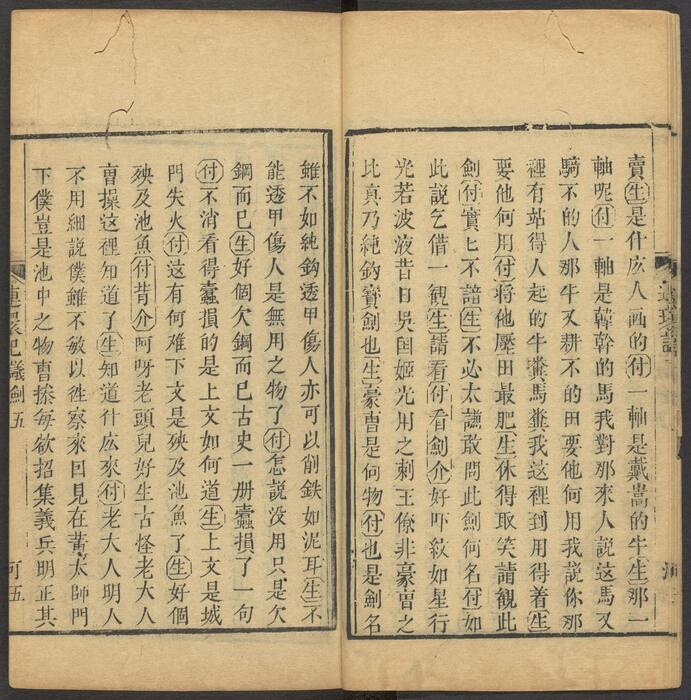 賣生是什庅人画的付一軸是戴嵩的牛生那一
軸呢付一軸是韓幹的馬我對那來人說這馬又
騎不的人那牛又耕不的田要他何用我說你那
裡有站得人起的牛糞馬糞我这裡到用得着生
要他何用付将他壓田最肥生休得取笑請觀此
劍付實匕不諳生不必太謙敢問此劍何名付如
此說乞借一觀生請看付看劍介好吓紋如星行
光若波液昔日吳囯姬光用之刺王僚非豪曹之
比真乃純鈎寳劍也生豪曹是何物付也是劍名
雖不如純鈎透甲傷人亦可以削鉄如泥耳生不
能透甲傷人是無用之物了付怎説没用只是欠
鋼而已生好個欠鋼而已古史一册蠹損了一句
付不消看得蠹損的是上文如何道生上文是城
門失火付这有何难下文是殃及池魚了生好個
殃及池魚付背介阿呀老頭兒好生古怪老大人
曹操这裡知道了生知道什庅來付老大人明人
不用細説僕雖不敏以徃察來囙見在黄太師門
下僕豈是池中之物曹操每欲招集義兵明正其
議劍 五
可五